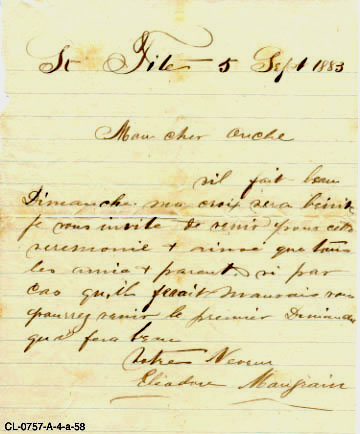 St Tite 5 Sept 1883
Mon cher oncle
sil fait beau
Dimanche ma croix sera bénite
je vous invite de venir pour cette
ceremonie + ainsi que tous
les amis + parents si par
cas qu'il ferait mauvais vous
pourrez venir le premier Dimanche
qui fera beau
Votre Neveu
Eliadore
CL-0757-A-4-a-58